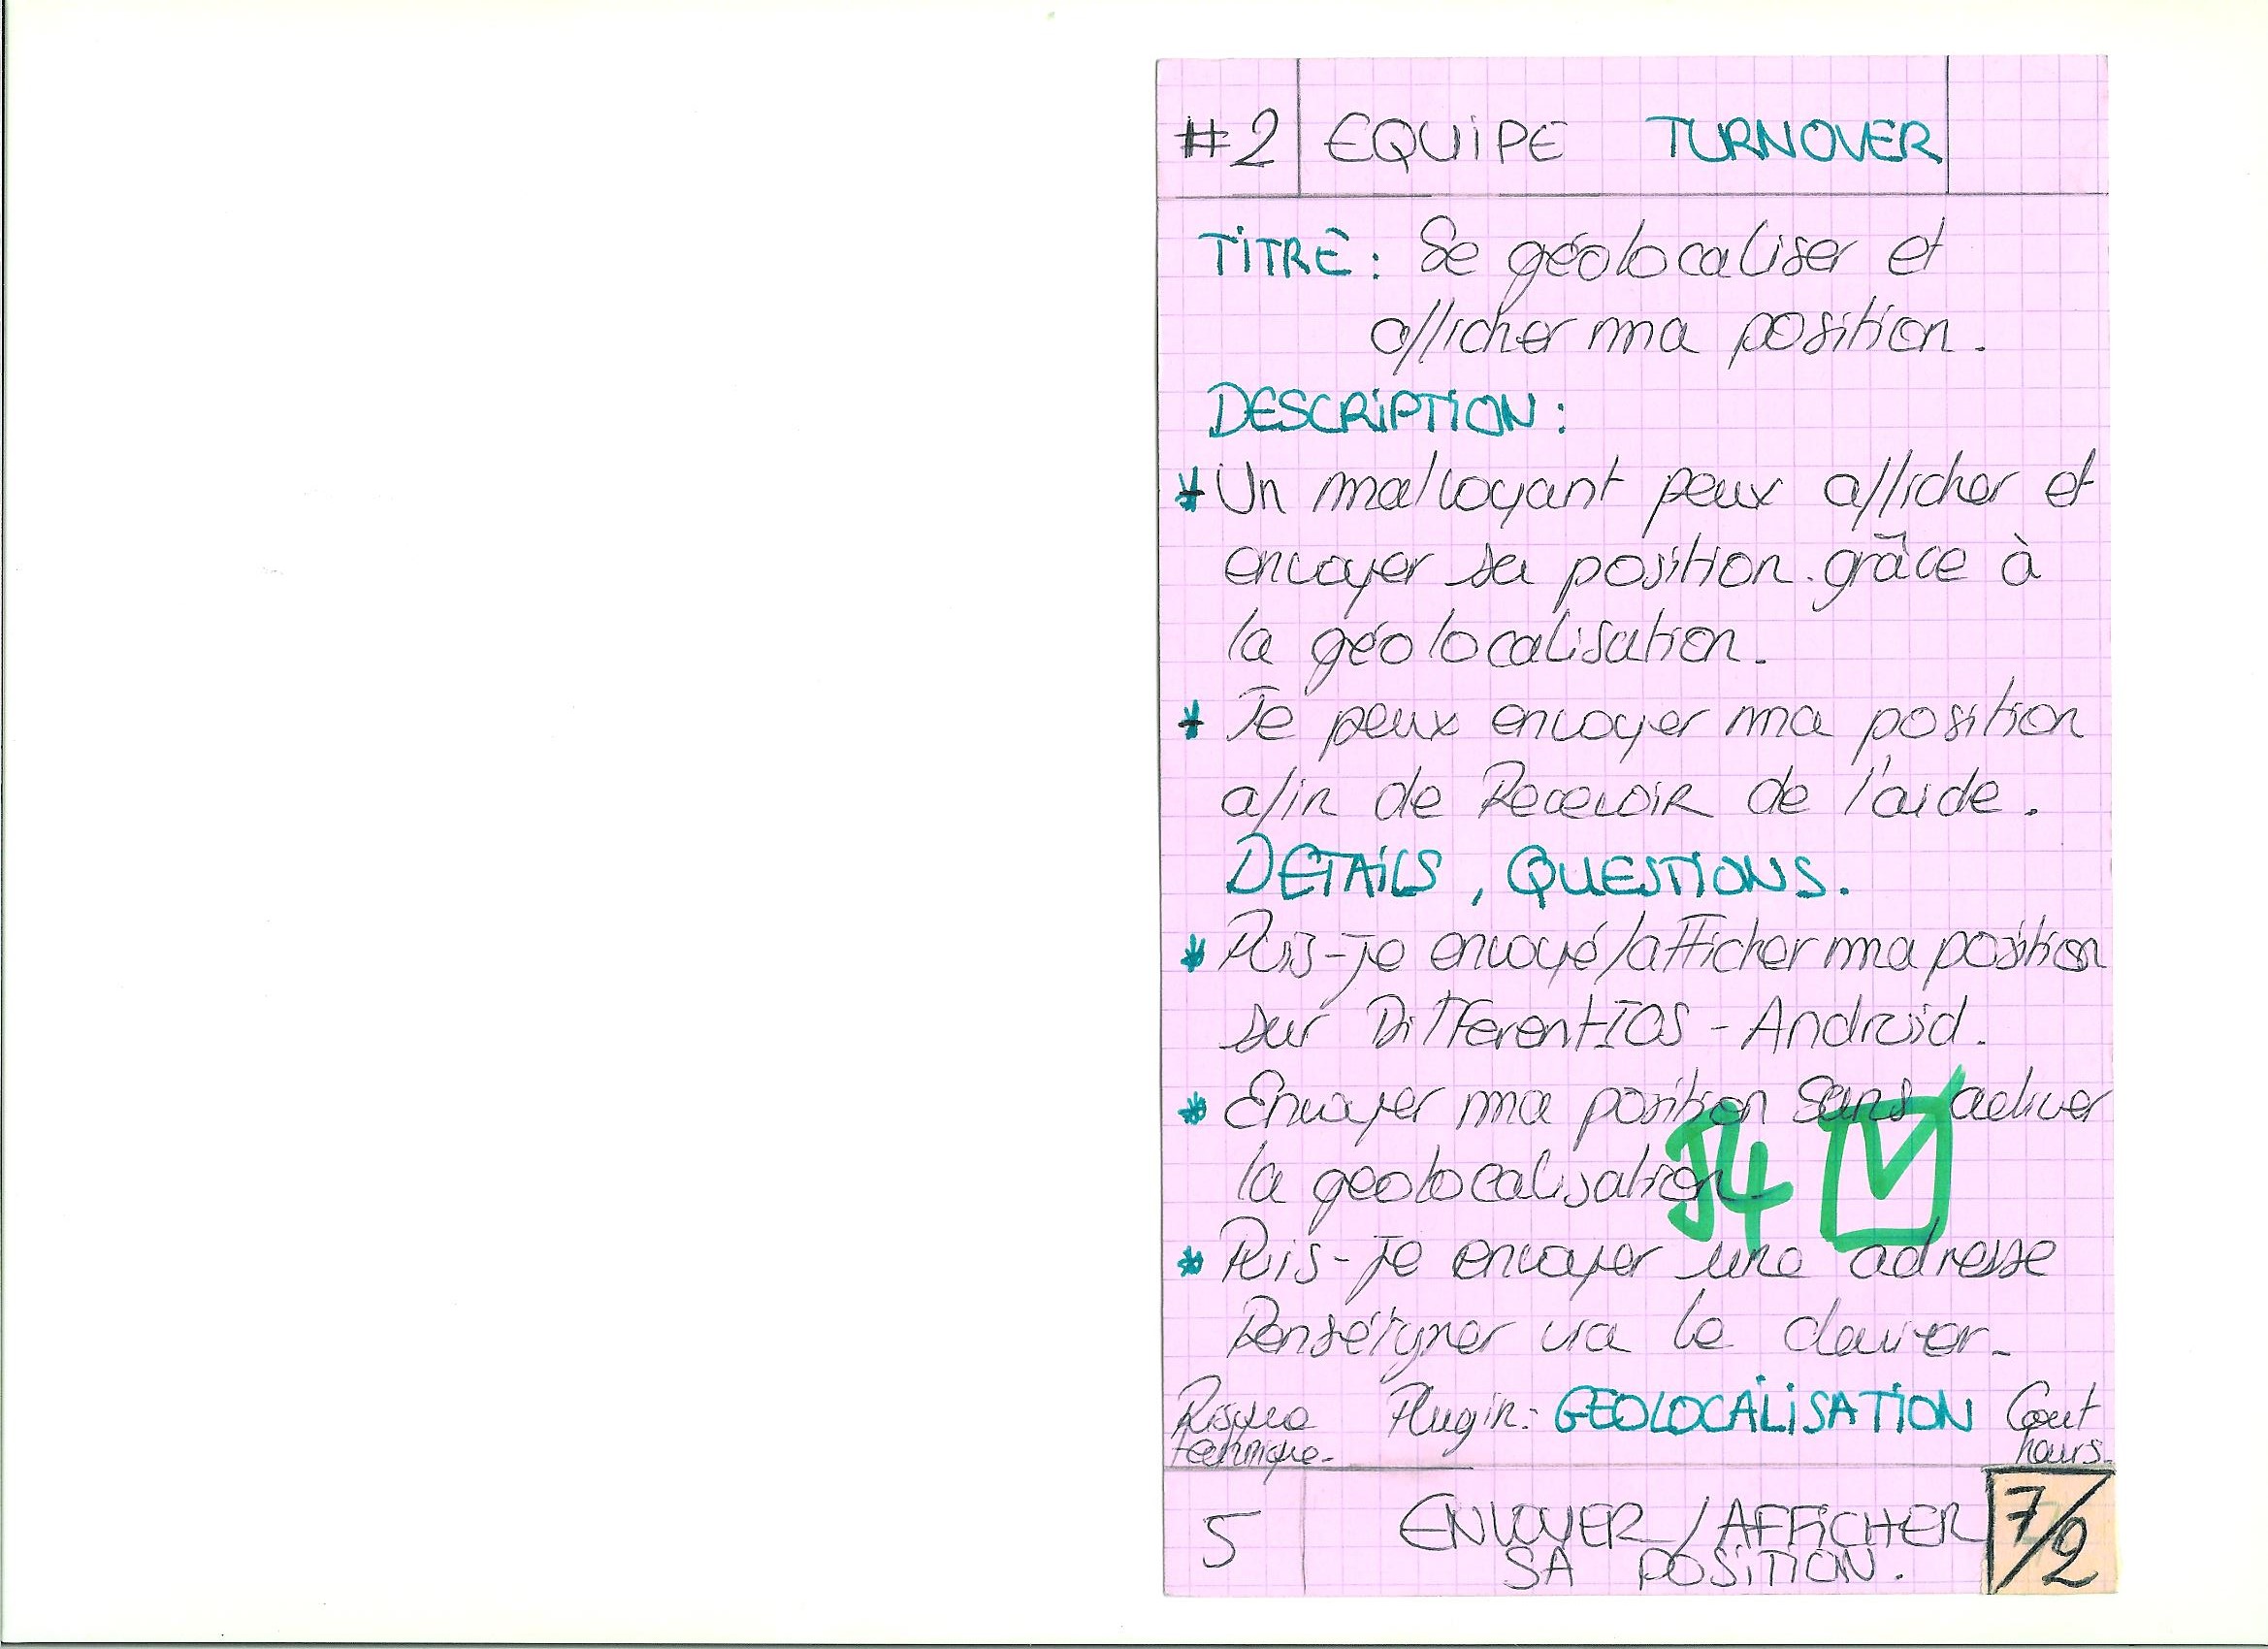 #2 EQUIPE TURNOVER
TITRE : Se géolocaliser et
afficher ma position.
DESCRIPTION :
* Un malvoyant peux afficher et
envoyer sa position. grâce à
la géolocalisation.
* Je peux envoyer ma position
afin de Recevoir de l'aide.
DETAILS, QUESTIONS.
* Puis-je envoyé/afficher ma position
sur Different IOS - Android.
* Envoyer ma position Sans activer
la geolocalisation.
J4
* Puis-je envoyer une adresse
Renseigner via le clavier.
Risque technique. Plugin: GEOLOCALISATION Cout hours.
5 ENVOYER/AFFICHER 7/2
SA POSITION.